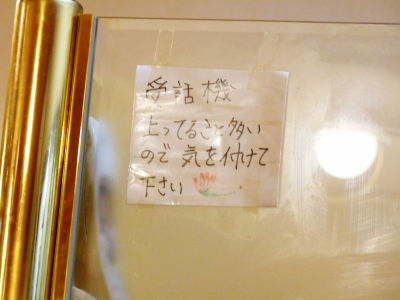 受話機
上ってること多い
ので気を付けて
下さい